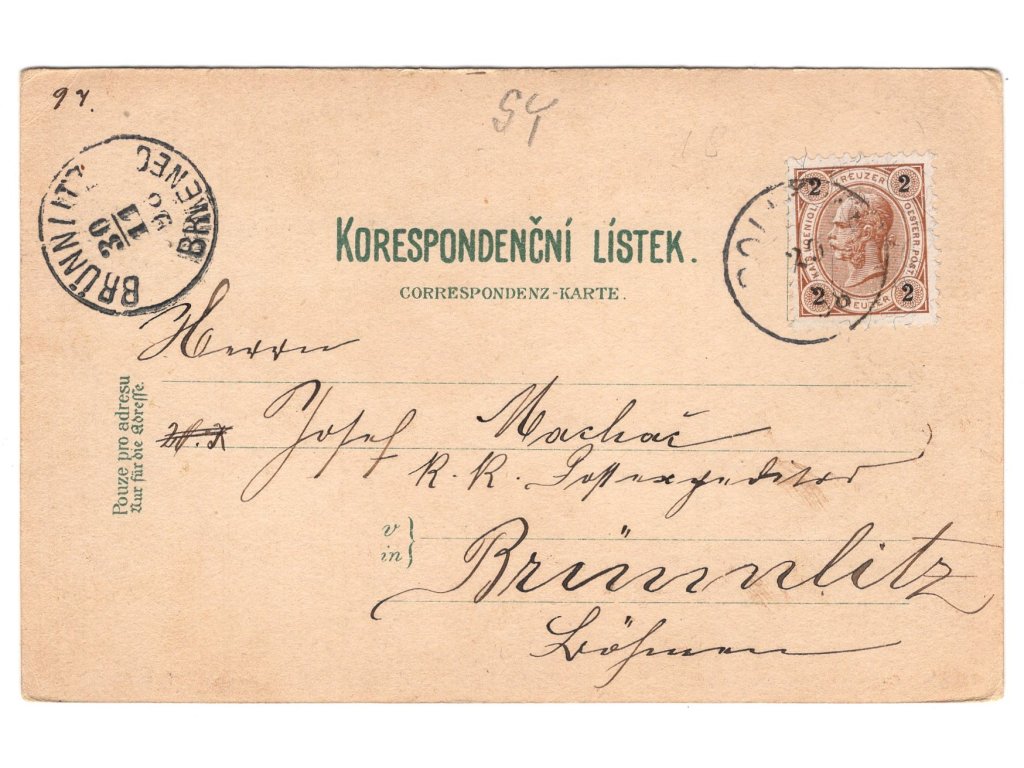 97.
54
BRÜNNLITZ
30
11
98
BRNĚNEC
2 KREUZER 2
KAIS. KOENIGL. OESTERR. POST.
2 KREUZER 2
KORESPONDENČNÍ LÍSTEK.
CORRESPONDENZ-KARTE.
Pouze pro adresu
Nur für die Adresse.
Herrn
Josef Machač
K. K. Postexpeditor
v
in
Brünnlitz
Böhmen